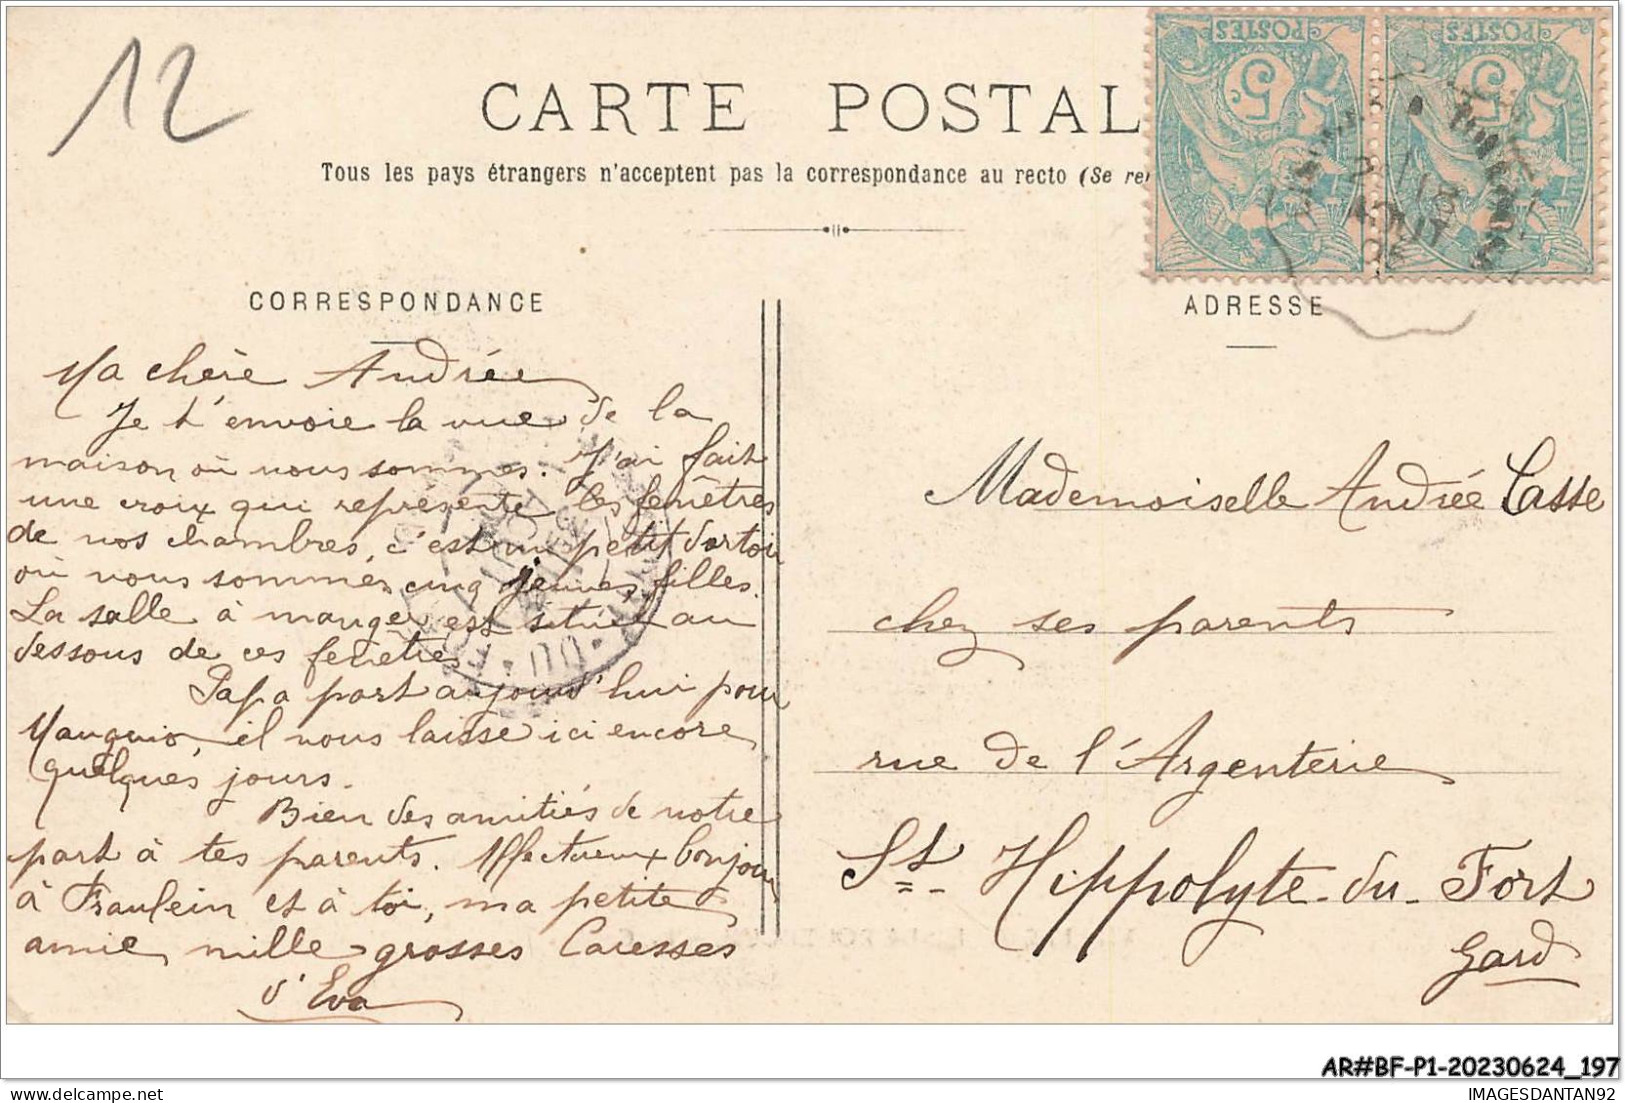 12
CARTE POSTAL
Tous les pays étrangers n'acceptent pas la correspondance au recto (Se re
POSTES
5
POSTES
5
AOUT
CORRESPONDANCE
ADRESSE
Ma chère Andrée
Je t'envoie la vue de la
maison où nous sommes. J'ai fait
une croix qui représente les fenêtres
de nos chambres, c'est un petit dortoir
où nous sommes cinq jeunes filles.
La salle à manger est située au
dessous de ces fenêtres
Papa part aujourd'hui pour
Mauguio, il nous laisse ici encore
quelques jours.
Bien des amitiés de notre
part à tes parents. Affectueux bonjour
à Fraulein et à toi, ma petite
amie, mille grosses Caresses
d'Eva
Mademoiselle Andrée Casse
chez ses parents
rue de l'Argenterie
St Hippolyte-du-Fort
Gard
AR#BF-P1-20230624_197
IMAGESDANTAN92